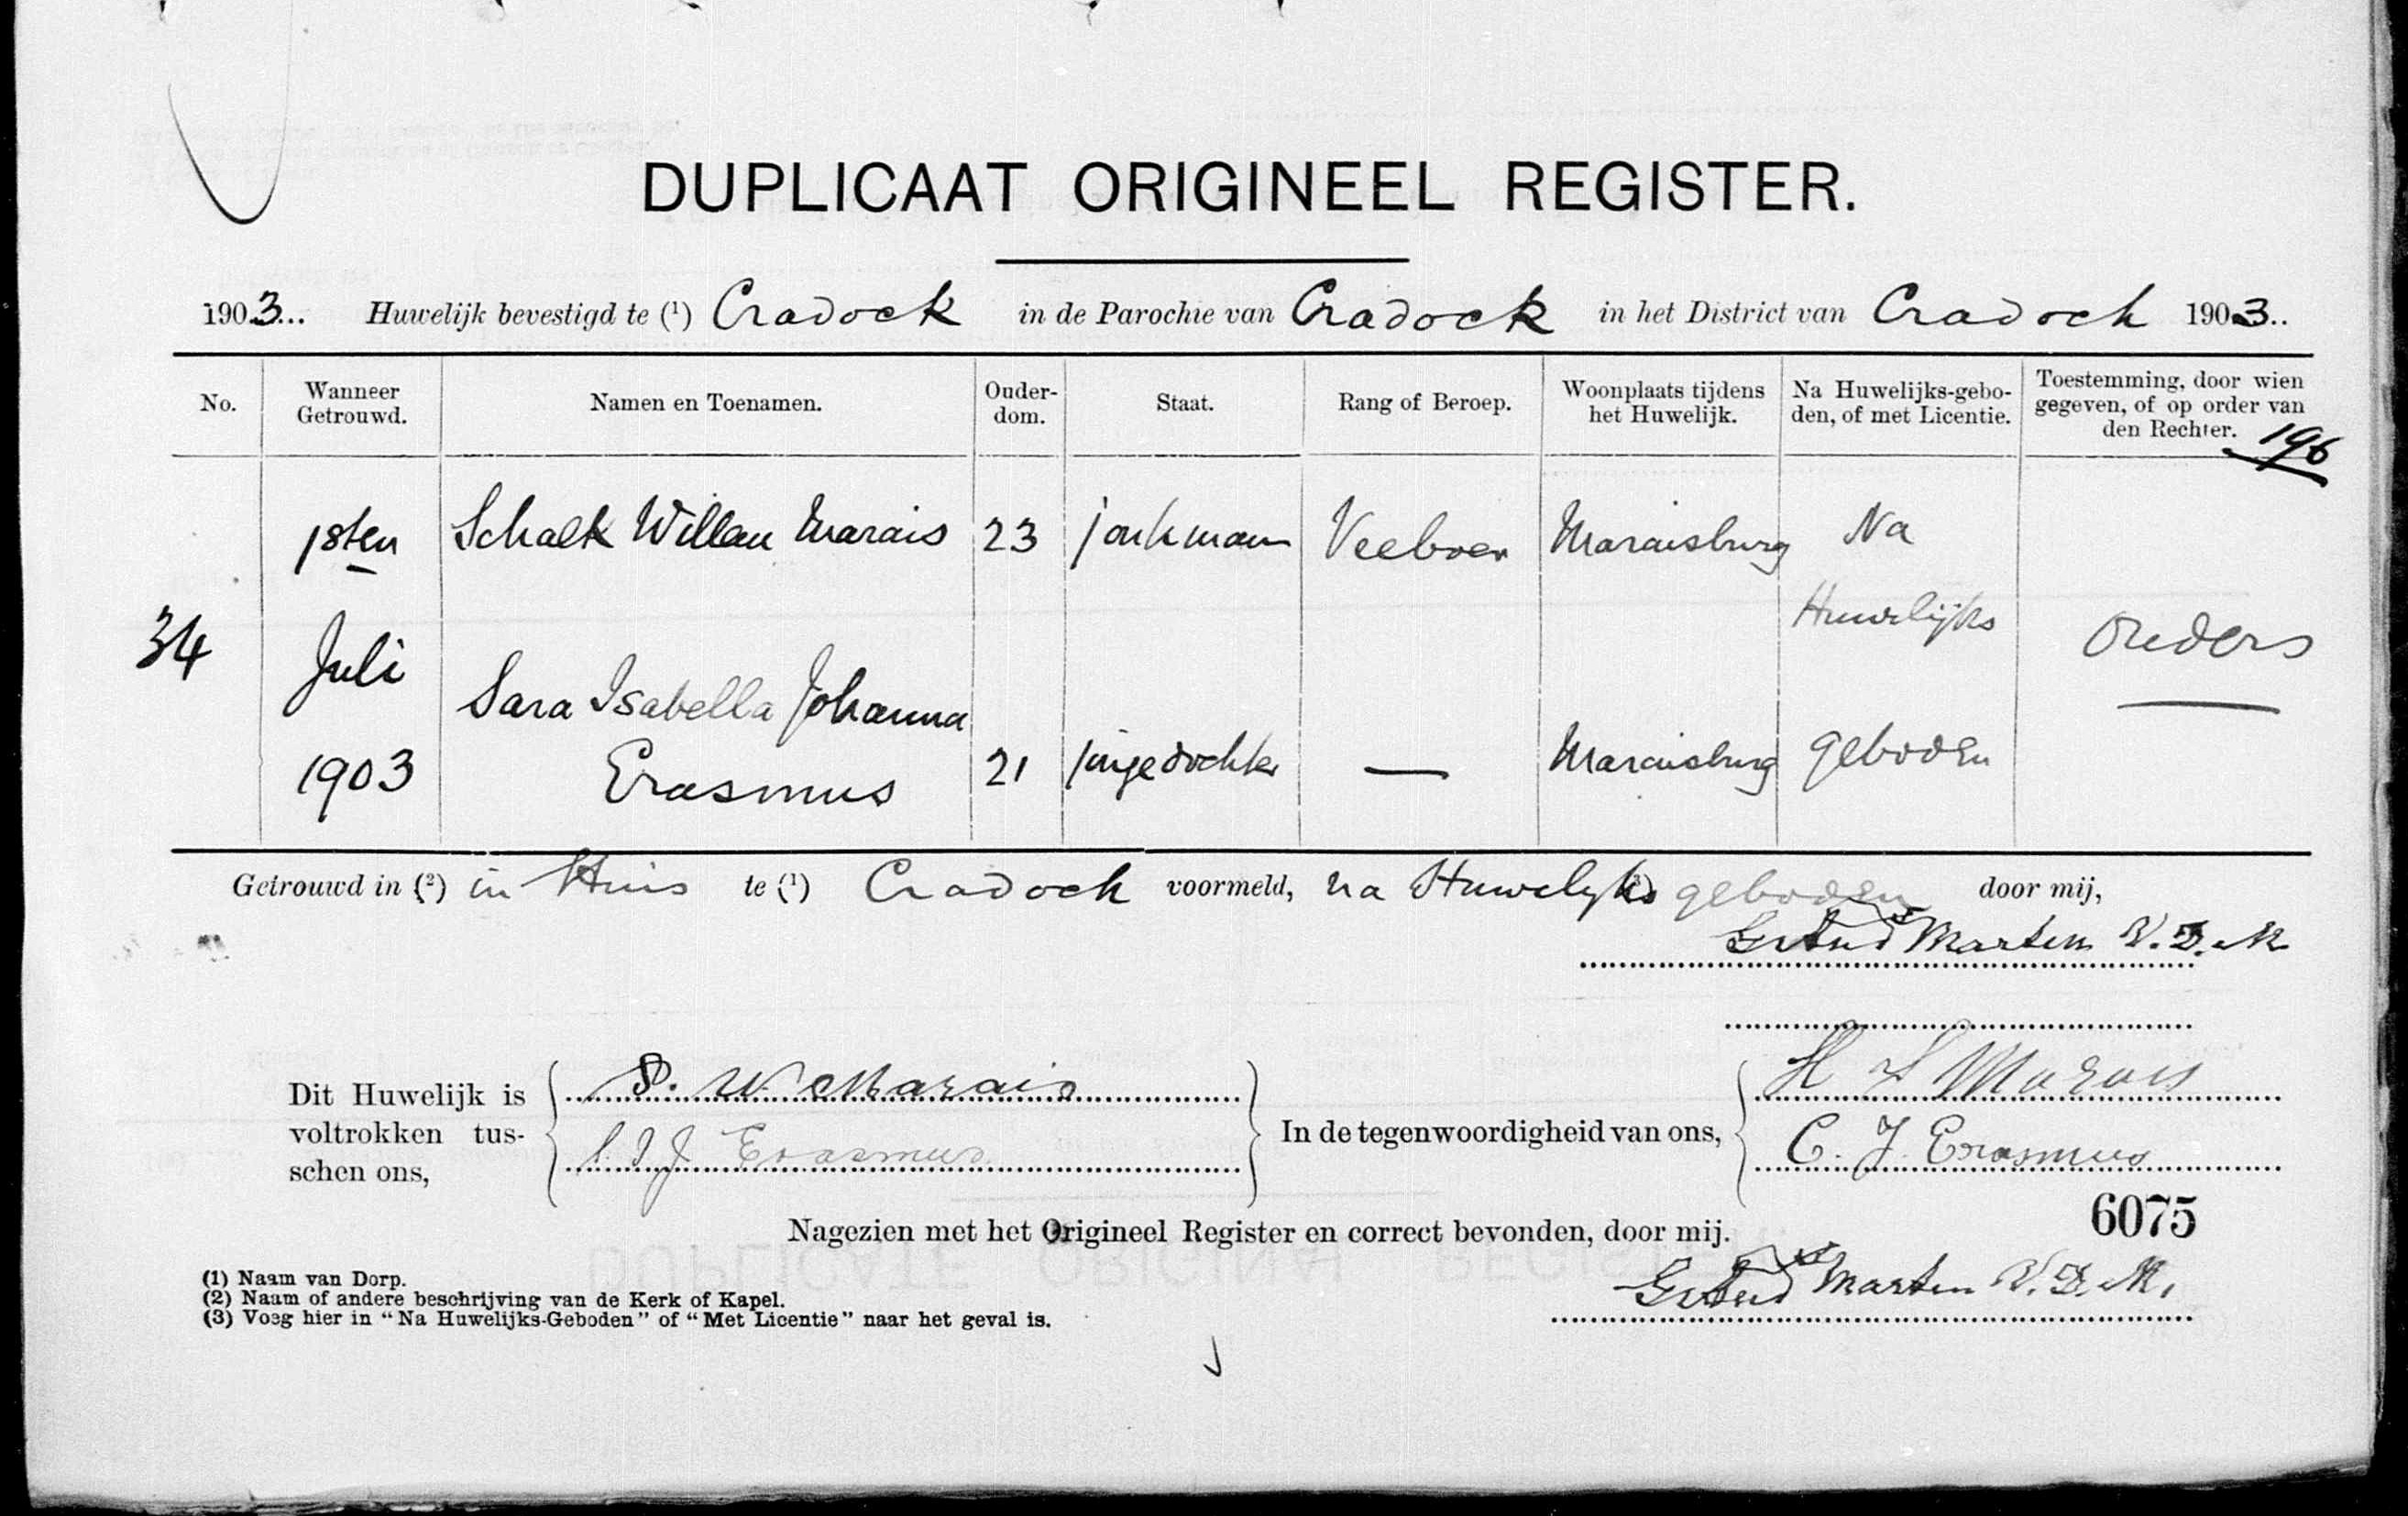 DUPLICAAT ORIGINEEL REGISTER.
1903... Huwelijk bevestigd te (¹) Cradock in de Parochie van Cradock in het District van Cradock 1903..
No. Wanneer Getrouwd. Namen en Toenamen. Ouder-dom. Staat. Rang of Beroep. Woonplaats tijdens het Huwelijk. Na Huwelijks-gebo-den, of met Licentie. Toestemming, door wien gegeven, of op order van den Rechter.
196
1sten Schalk Willem Marais 23 jonkman Veeboer Maraisburg Na
Huwelijks
34 Juli Ouders
Sara Isabella Johanna
1903 Erasmus 21 jongedochter — Maraisburg geboden
Getrouwd in (²) in Huis te (¹) Cradock voormeld, na Huwelijks (³) geboden door mij,
Marten V.D.M
Dit Huwelijk is voltrokken tus-schen ons,
S. W. Marais
S. I. J. Erasmus
In de tegenwoordigheid van ons,
Marais
C. J. Erasmus
6075
Nagezien met het Origineel Register en correct bevonden, door mij.
Marten V.D.M.
(1) Naam van Dorp.
(2) Naam of andere beschrijving van de Kerk of Kapel.
(3) Voeg hier in "Na Huwelijks-Geboden" of "Met Licentie" naar het geval is.